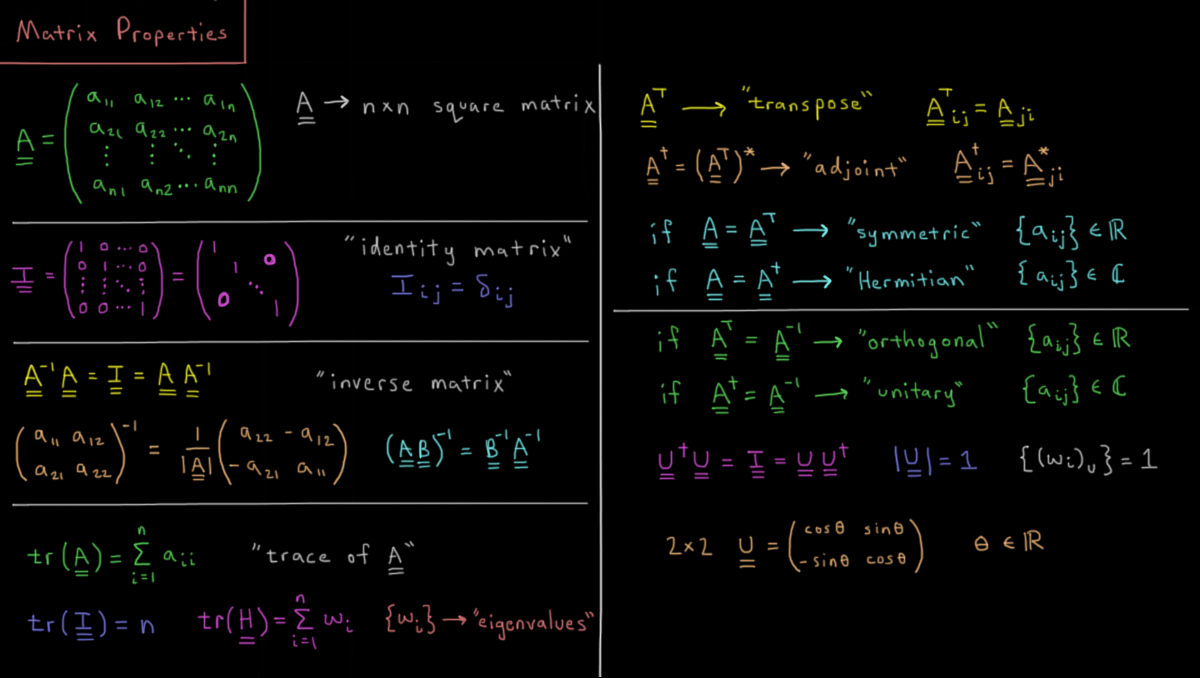 Matrix Properties
A = ( a₁₁ a₁₂ ⋯ a₁ₙ
a₂₁ a₂₂ ⋯ a₂ₙ
⋮ ⋮ ⋱ ⋮
aₙ₁ aₙ₂ ⋯ aₙₙ )
A → n×n square matrix
I = ( 1 0 ⋯ 0
0 1 ⋯ 0
⋮ ⋮ ⋱ ⋮
0 0 ⋯ 1 ) = ( 1 0
1
⋱
0 1 )
"identity matrix"
Iᵢⱼ = δᵢⱼ
A⁻¹ A = I = A A⁻¹
"inverse matrix"
( a₁₁ a₁₂
a₂₁ a₂₂ )⁻¹ = 1/|A| ( a₂₂ -a₁₂
-a₂₁ a₁₁ )
(AB)⁻¹ = B⁻¹ A⁻¹
tr(A) = Σᵢ₌₁ⁿ aᵢᵢ "trace of A"
tr(I) = n tr(H) = Σᵢ₌₁ⁿ wᵢ {wᵢ} → "eigenvalues"
Aᵀ → "transpose" Aᵀᵢⱼ = Aⱼᵢ
A† = (Aᵀ)* → "adjoint" A†ᵢⱼ = A*ⱼᵢ
if A = Aᵀ → "symmetric" {aᵢⱼ} ∈ ℝ
if A = A† → "Hermitian" {aᵢⱼ} ∈ ℂ
if Aᵀ = A⁻¹ → "orthogonal" {aᵢⱼ} ∈ ℝ
if A† = A⁻¹ → "unitary" {aᵢⱼ} ∈ ℂ
U†U = I = UU† |U| = 1 {(wᵢ)ᵤ} = 1
2×2 U = ( cosθ sinθ
-sinθ cosθ ) θ ∈ ℝ